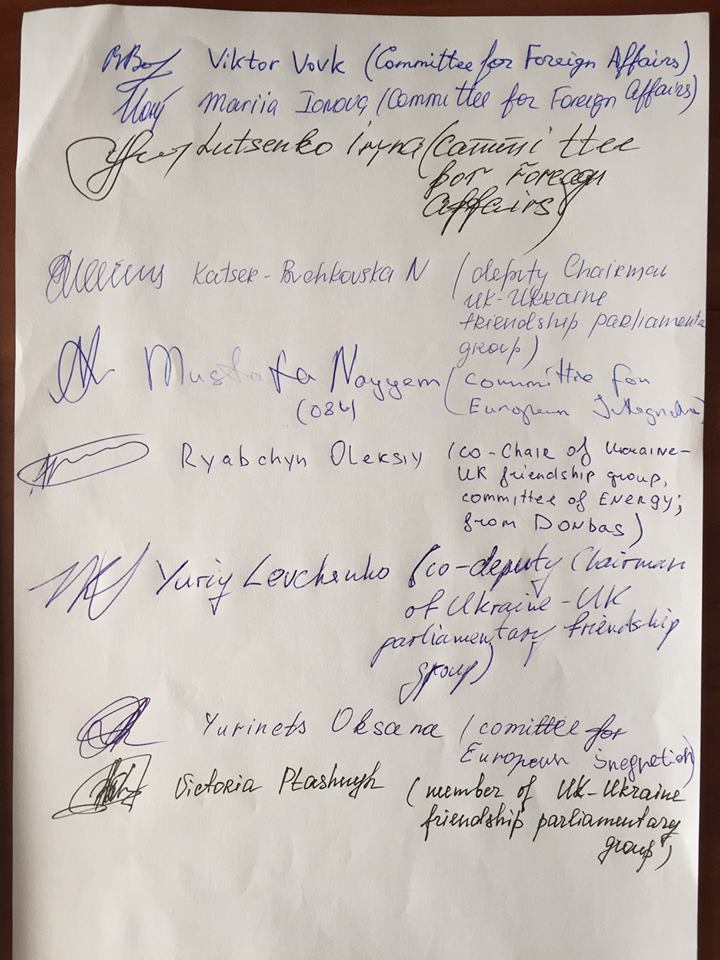 Viktor Vovk (Committee for Foreign Affairs)
Mariia Ionova (Committee for Foreign Affairs)
Lutsenko Iryna (Committee
for Foreign
Affairs)
Katser-Buchkovska N (deputy Chairman
UK-Ukraine
friendship parliamenta
group)
Mustafa Nayyem (committie for
(084) European
Ryabchyn Oleksiy (co-Chair of Ukraine-
UK friendship group,
committee of ENERGY;
from Donbas)
Yuriy Levchenko (co-deputy Chairman
of Ukraine-UK
parliamentary friendship
group)
Yurinets Oksana (comittee for
European Inegretion)
Victoria Ptashnyk (member of UK-Ukraine
friendship parliamentary
group)